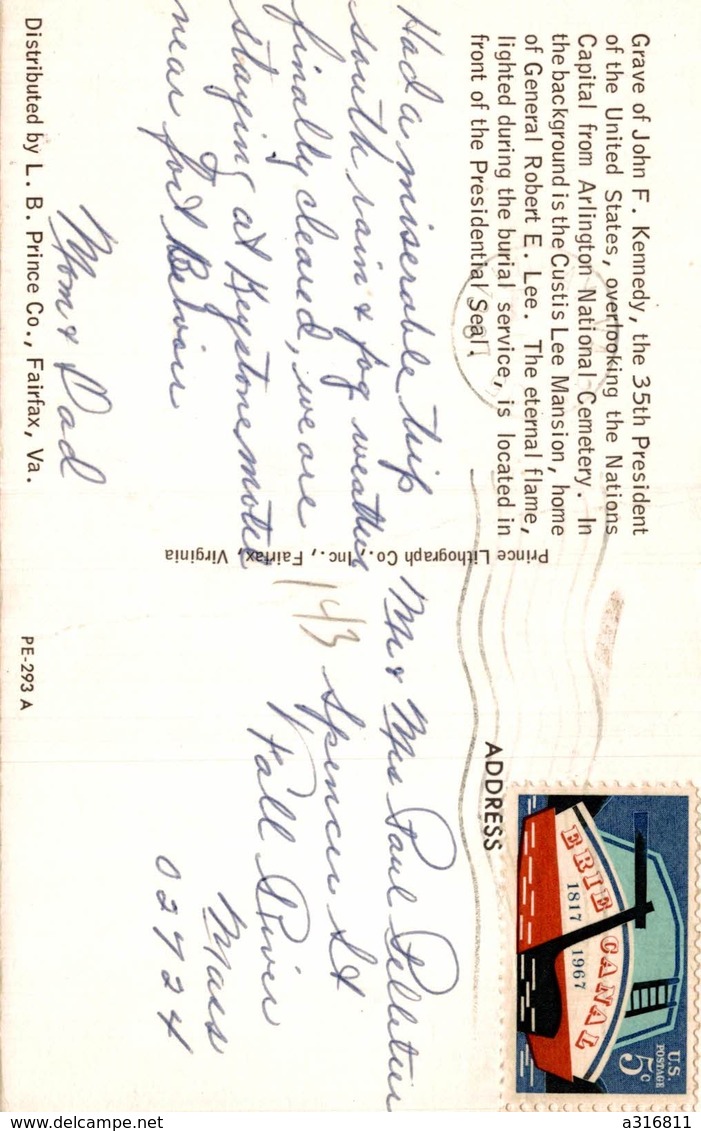 Grave of John F. Kennedy, the 35th President
of the United States, overlooking the Nations
Capital from Arlington National Cemetery. In
the background is the Custis Lee Mansion, home
of General Robert E. Lee. The eternal flame,
lighted during the burial service, is located in
front of the Presidential Seal.
Had a miserable trip
south rain & fog weather
finally cleared, we are
staying at Keystone motel
near fort Belvoir
Mom & Dad
Distributed by L. B. Prince Co., Fairfax, Va.
Prince Lithograph Co., Inc., Fairfax, Virginia
PE-293 A
ADDRESS
ERIE CANAL
1817 1967
U.S.
POSTAGE
5c
Mr & Mrs Paul
143 Spencer St
Fall River
Mass
02724
delcampe.net
a316811